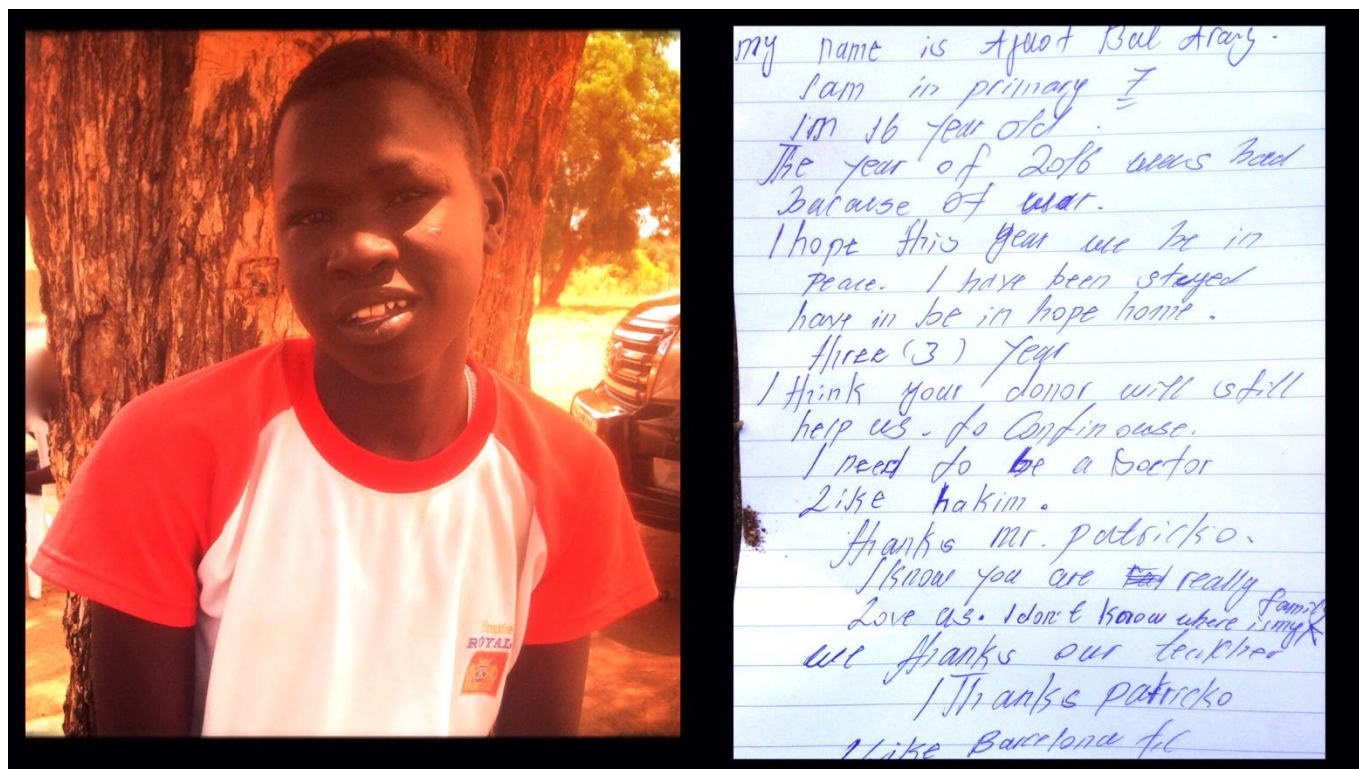 ROYAL
my name is Ajuot Bol Arang.
I am in primary 7
I'm 16 year old.
The year of 2016 was bad
bacause of war.
I hope this year we be in
peace. I have been stayed
have in be in hope home.
three (3) year
I think your donor will still
help us. to Continouse.
I need to be a Doctor
Like hakim.
thanks mr. patricko.
I know you are really
Love us. I don't know where is my family
we thanks our teacher
I Thanks patricko
I like Barcelona f.c